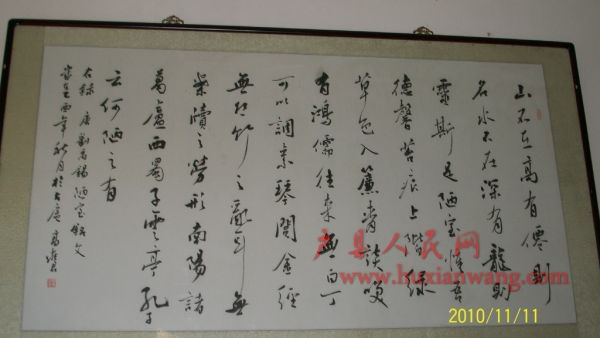 山不在高有僊則
名水不在深有龍則
靈斯是陋室惟吾
德馨苔痕上階緑
草色入簾青談笑
有鴻儒往來無白丁
可以調素琴閲金經
無絲竹之亂耳無
案牘之勞形南陽諸
葛廬西蜀子雲亭孔子
云何陋之有
右録唐劉禹錫陋室銘文
酉年秋月於古扈高
户县人民网
www.huxianwang.com
2010/11/11